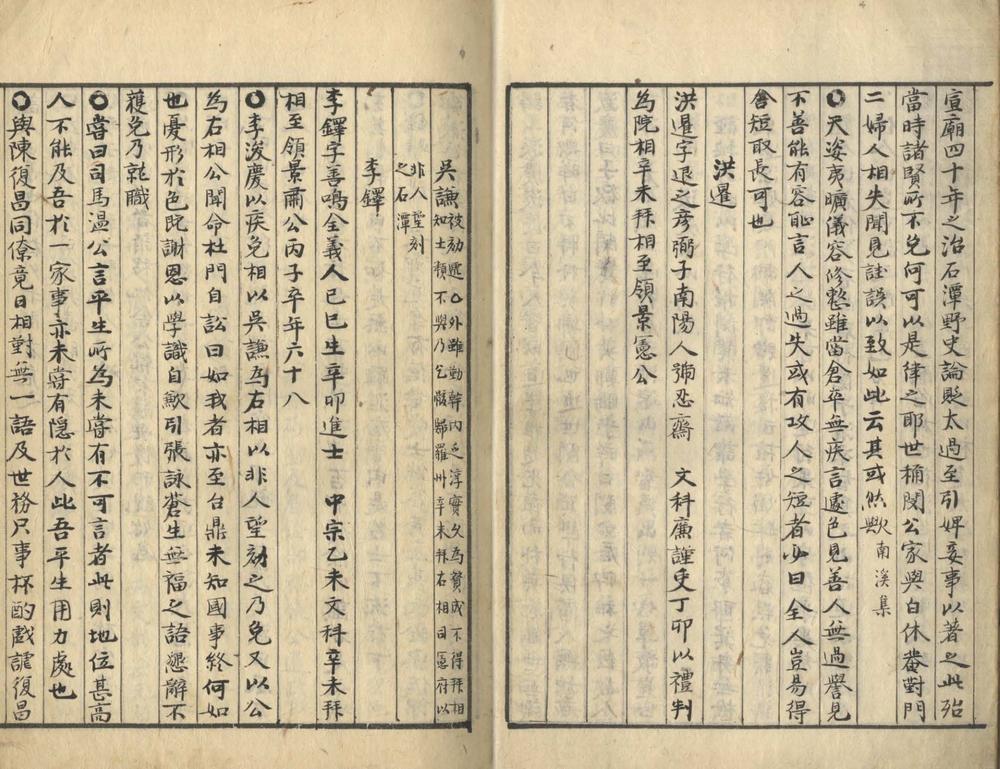 宣廟四十年之治石潭野史論貶太過至引婢妾事以著之此殆
當時諸賢所不免何可以是律之耶世稱閔公家與白休菴對門
二婦人相失聞見註誤以致如此云其或然歟南溪集
天姿夷曠儀容修整雖當倉卒無疾言遽色見善人無過譽見
不善能有容耻言人之過失或有攻人之短者必曰全人豈易得
舍短取長可也
洪暹
洪暹字退之彦弼子南陽人號忍齋 文科廉謹吏丁卯以禮判
為院相辛未拜相至領景憲公
吳謙被劾遞 外雖勤幹内乏淳實久為贊成不得拜相
知士類不與乃乞骸歸羅州辛未拜右相司憲府以
非人望刻
之石潭
李鐸
李鐸字善鳴全義人己巳生辛卯進士 中宗乙未文科辛未拜
相至領景肅公丙子卒年六十八
李浚慶以疾免相以吳謙為右相以非人望劾之乃免又以公
為右相公聞命杜門自訟曰如我者亦至台鼎未知國事終何如
也憂形於色既謝恩以學識自歉引張詠蒼生無福之語懇辭不
獲免乃就職
嘗曰司馬溫公言平生所為未嘗有不可言者此則地位甚高
人不能及吾於一家事亦未嘗有隠於人此吾平生用力處也
與陳復昌同僚竟日相對無一語及世務只事杯酌戲謔復昌